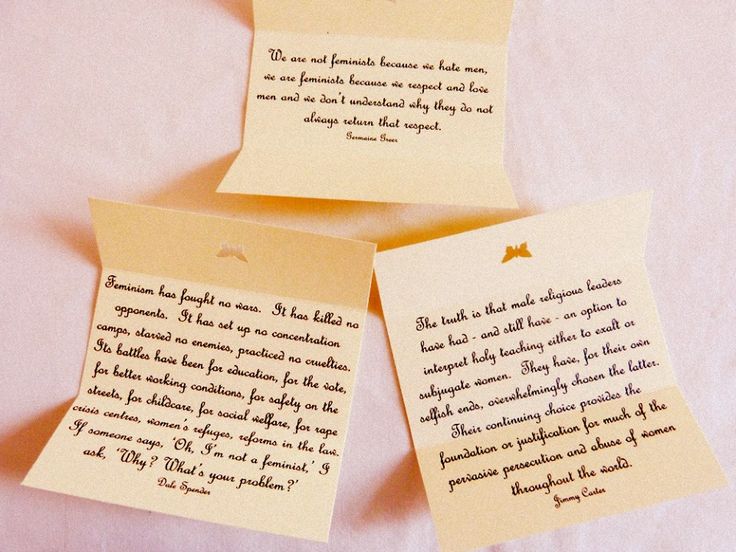 We are not feminists because we hate men,
we are feminists because we respect and love
men and we don't understand why they do not
always return that respect.
Germaine Greer
Feminism has fought no wars. It has killed no
opponents. It has set up no concentration
camps, starved no enemies, practiced no cruelties.
Its battles have been for education, for the vote,
for better working conditions, for safety on the
streets, for childcare, for social welfare, for rape
crisis centres, women's refuges, reforms in the law.
If someone says, 'Oh, I'm not a feminist,' I
ask, 'Why? What's your problem?'
Dale Spender
The truth is that male religious leaders
have had - and still have - an option to
interpret holy teaching either to exalt or
subjugate women. They have, for their own
selfish ends, overwhelmingly chosen the latter.
Their continuing choice provides the
foundation or justification for much of the
pervasive persecution and abuse of women
throughout the world.
Jimmy Carter